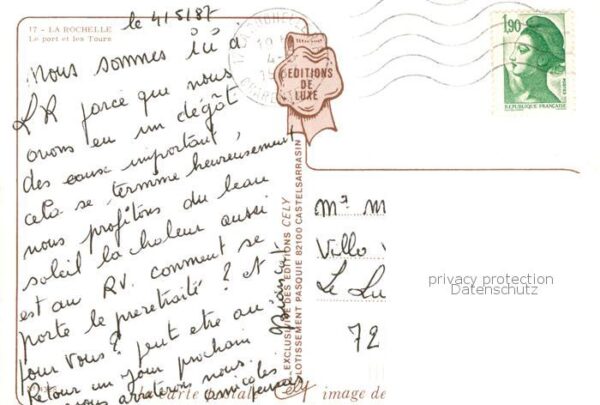 le 4/5/87
17 - LA ROCHELLE
Le port et les Tours
Nous sommes ici à
LR parce que nous
avons eu un dégôt
des eaux important,
cela se termine heureusement
nous profitons du beau
soleil la chaleur aussi
est au RV. comment se
porte le préretraité ? et
pour Vous ? peut etre au
Retour un jour prochain
nous arreterons nous.
amicales pensées
EDITIONS
DE
LUXE
EXCLUSIVITE DES EDITIONS CELY
LOTISSEMENT PASQUIE 82100 CASTELSARRASIN
1,90
REPUBLIQUE FRANÇAISE
Mr M
Villa
Le Lu
72
privacy protection
Datenschutz
la carte postale Cely image de